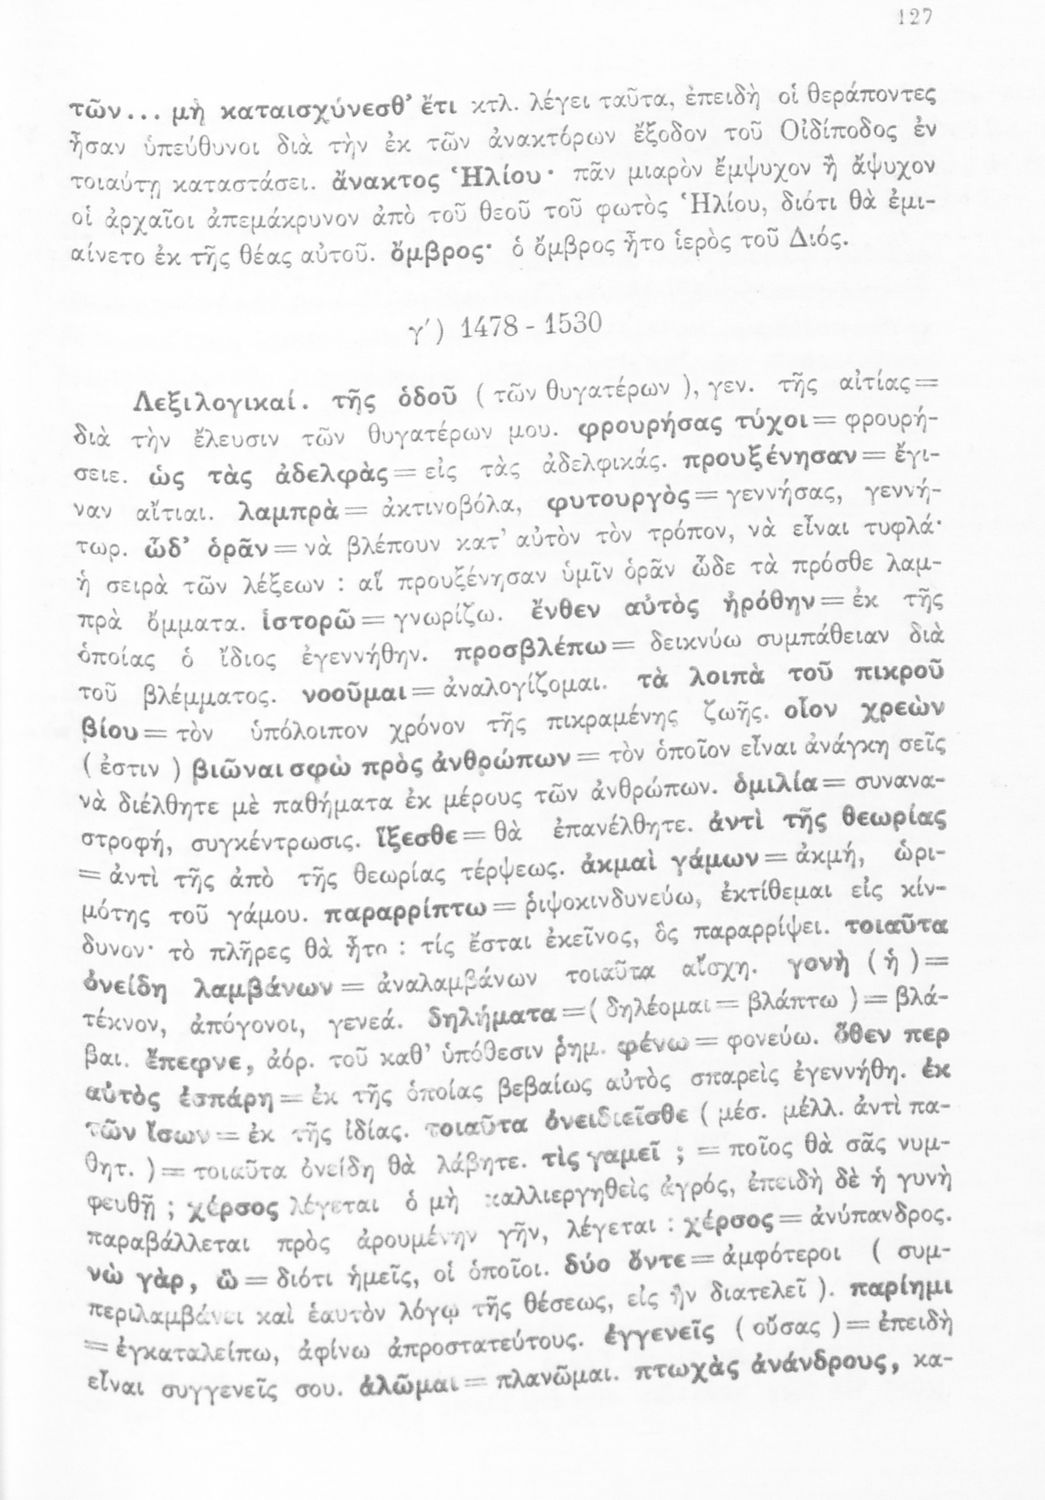 127
τῶν... μὴ καταισχύνεσθ' ἔτι κτλ. λέγει ταῦτα, ἐπειδὴ οἱ θεράποντες
ἦσαν ὑπεύθυνοι διὰ τὴν ἐκ τῶν ἀνακτόρων ἔξοδον τοῦ Οἰδίποδος ἐν
τοιαύτῃ καταστάσει. ἄνακτος Ἡλίου· πᾶν μιαρὸν ἔμψυχον ἢ ἄψυχον
οἱ ἀρχαῖοι ἀπεμάκρυνον ἀπὸ τοῦ θεοῦ τοῦ φωτὸς Ἡλίου, διότι θὰ ἐμι-
αίνετο ἐκ τῆς θέας αὐτοῦ. ὄμβρος· ὁ ὄμβρος ἦτο ἱερὸς τοῦ Διός.
γ') 1478 - 1530
Λεξιλογικαί. τῆς ὁδοῦ ( τῶν θυγατέρων ), γεν. τῆς αἰτίας =
διὰ τὴν ἔλευσιν τῶν θυγατέρων μου. φρουρήσας τύχοι = φρουρή-
σειε. ὡς τὰς ἀδελφὰς = εἰς τὰς ἀδελφικάς. προυξένησαν = ἔγι-
ναν αἴτιαι. λαμπρὰ = ἀκτινοβόλα, φυτουργὸς = γεννήσας, γεννή-
τωρ. ὧδ' ὁρᾶν = νὰ βλέπουν κατ' αὐτὸν τὸν τρόπον, νὰ εἶναι τυφλά·
ἡ σειρὰ τῶν λέξεων : αἳ προυξένησαν ὑμῖν ὁρᾶν ὧδε τὰ πρόσθε λαμ-
πρὰ ὄμματα. ἱστορῶ = γνωρίζω. ἔνθεν αὐτὸς ἠρόθην = ἐκ τῆς
ὁποίας ὁ ἴδιος ἐγεννήθην. προσβλέπω = δεικνύω συμπάθειαν διὰ
τοῦ βλέμματος. νοοῦμαι = ἀναλογίζομαι. τὰ λοιπὰ τοῦ πικροῦ
βίου = τὸν ὑπόλοιπον χρόνον τῆς πικραμένης ζωῆς. οἷον χρεὼν
( ἐστιν ) βιῶναι σφὼ πρὸς ἀνθρώπων = τὸν ὁποῖον εἶναι ἀνάγκη σεῖς
νὰ διέλθητε μὲ παθήματα ἐκ μέρους τῶν ἀνθρώπων. ὁμιλία = συνανα-
στροφή, συγκέντρωσις. ἵξεσθε = θὰ ἐπανέλθητε. ἀντὶ τῆς θεωρίας
= ἀντὶ τῆς ἀπὸ τῆς θεωρίας τέρψεως. ἀκμαὶ γάμων = ἀκμή, ὡρι-
μότης τοῦ γάμου. παραρρίπτω = ριψοκινδυνεύω, ἐκτίθεμαι εἰς κίν-
δυνον· τὸ πλῆρες θὰ ἦτο : τίς ἔσται ἐκεῖνος, ὃς παραρρίψει. τοιαῦτα
ὀνείδη λαμβάνων = ἀναλαμβάνων τοιαῦτα αἴσχη. γονὴ ( ἡ ) =
τέκνον, ἀπόγονοι, γενεά. δηλήματα = ( δηλέομαι = βλάπτω ) = βλά-
βαι. ἔπεφνε, ἀόρ. τοῦ καθ' ὑπόθεσιν ρημ. φένω = φονεύω. ὅθεν περ
αὐτὸς ἐσπάρη = ἐκ τῆς ὁποίας βεβαίως αὐτὸς σπαρεὶς ἐγεννήθη. ἐκ
τῶν ἴσων = ἐκ τῆς ἰδίας. τοιαῦτα ὀνειδιεῖσθε ( μέσ. μέλλ. ἀντὶ πα-
θητ. ) = τοιαῦτα ὀνείδη θὰ λάβητε. τὶς γαμεῖ ; = ποῖος θὰ σᾶς νυμ-
φευθῇ ; χέρσος λέγεται ὁ μὴ καλλιεργηθεὶς ἀγρός, ἐπειδὴ δὲ ἡ γυνὴ
παραβάλλεται πρὸς ἀρουμένην γῆν, λέγεται : χέρσος = ἀνύπανδρος.
νὼ γὰρ, ὣ = διότι ἡμεῖς, οἱ ὁποῖοι. δύο ὄντε = ἀμφότεροι ( συμ-
περιλαμβάνει καὶ ἑαυτὸν λόγῳ τῆς θέσεως, εἰς ἣν διατελεῖ ). παρίημι
= ἐγκαταλείπω, ἀφίνω ἀπροστατεύτους. ἐγγενεῖς ( οὔσας ) = ἐπειδὴ
εἶναι συγγενεῖς σου. ἀλῶμαι = πλανῶμαι. πτωχὰς ἀνάνδρους, κα-